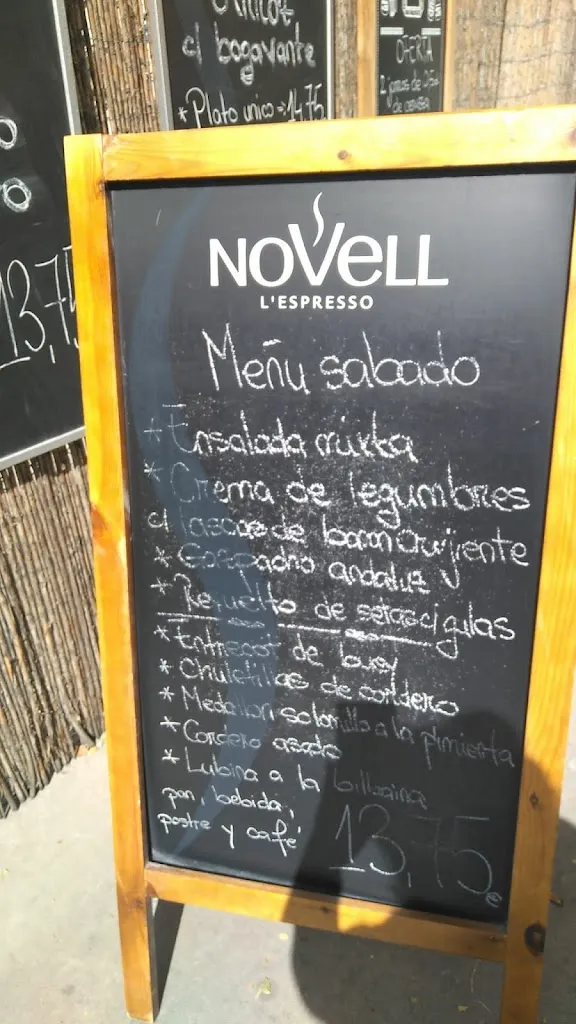 c/ bogavante
*Plato unico = 14,75
OFERTA
13,75
NOVELL
L'ESPRESSO
Menú sabado
* Ensalada mixta
* Crema de legumbres
c/ lascas de bacon crujiente
* andaluz
* Revuelto de setas c/ gulas
* Entrecot de buey
* Chuletillas de cordero
* Medallon solomillo a la pimienta
* Cordero asado
* Lubina a la bilbaina
pan, bebida,
postre y café
13,75 €